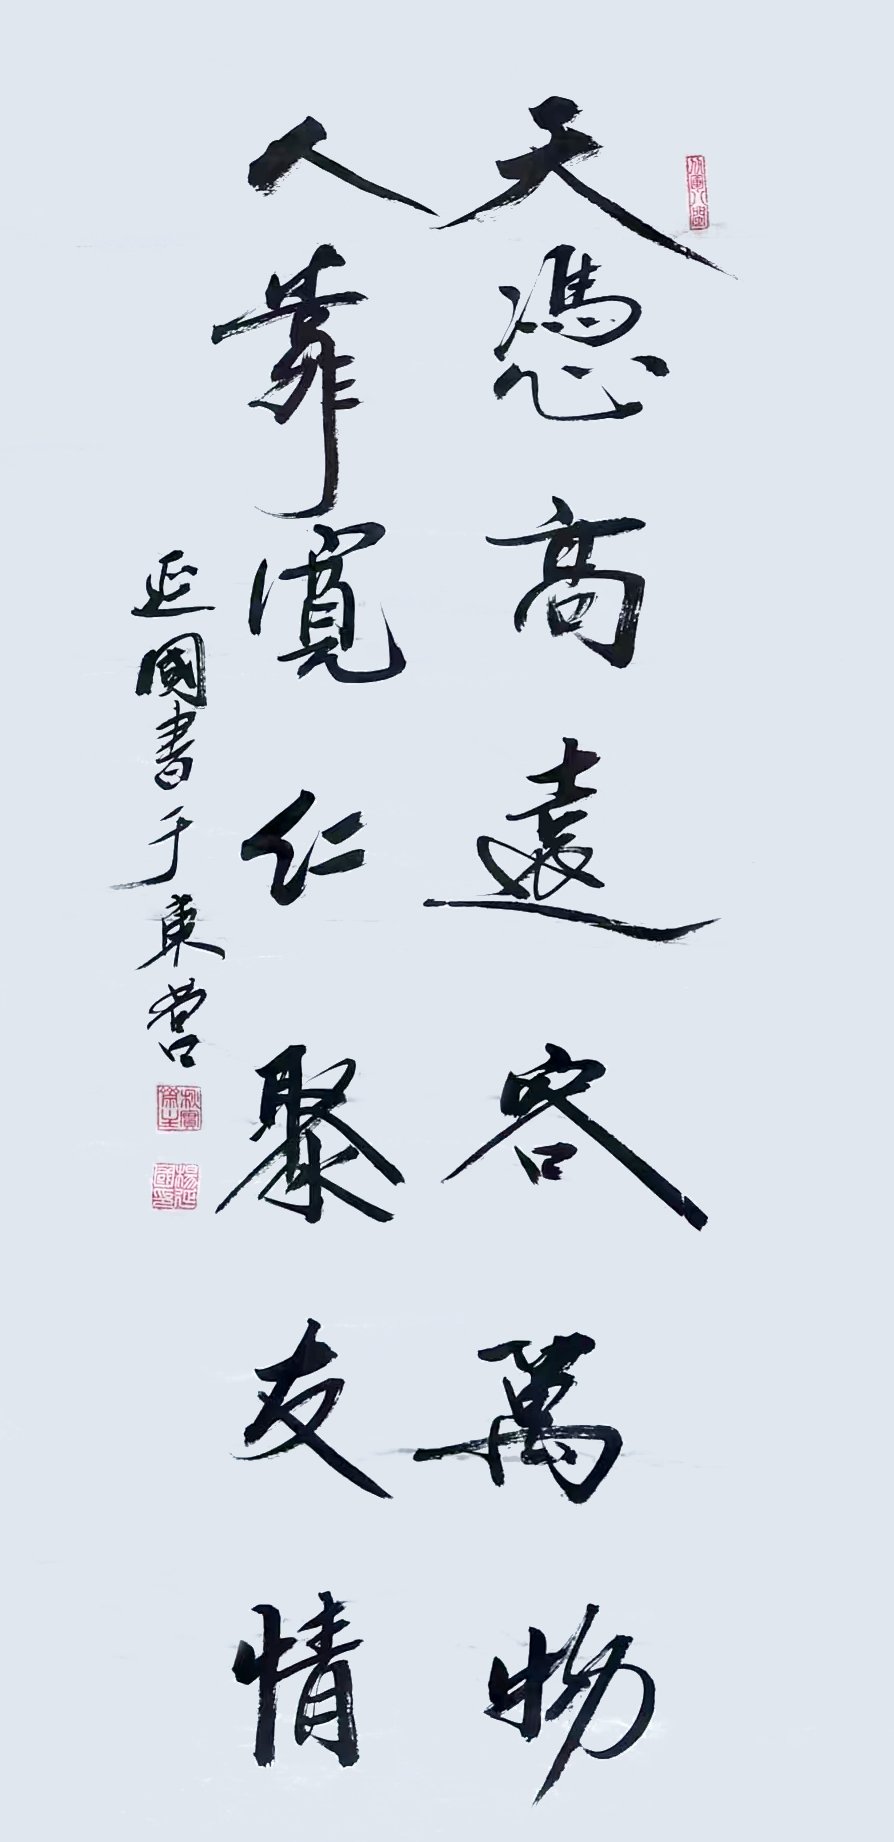 天憑高遠容萬物
人靠寬仁聚友情
延國書于東營